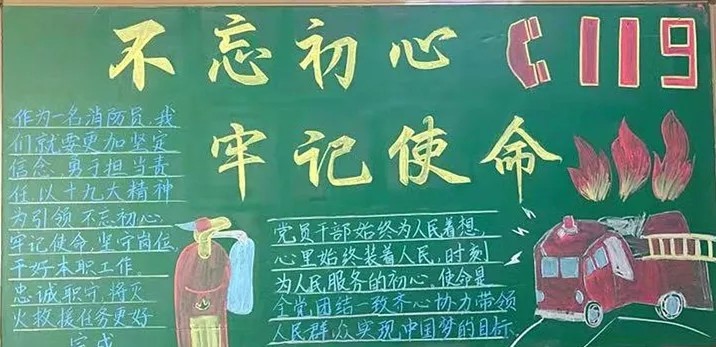 不忘初心 119
牢记使命
作为一名消防员,我
们就要更加坚定
信念,勇于担当责
任,以十九大精神
为引领,不忘初心,
牢记使命,坚守岗位,
干好本职工作,
忠诚职守,将灭
火救援任务更好
完成
党员干部始终为人民着想,
心里始终装着人民,时刻
为人民服务的初心,使命是
全党团结一致齐心协力带领
人民群众实现中国梦的目标.